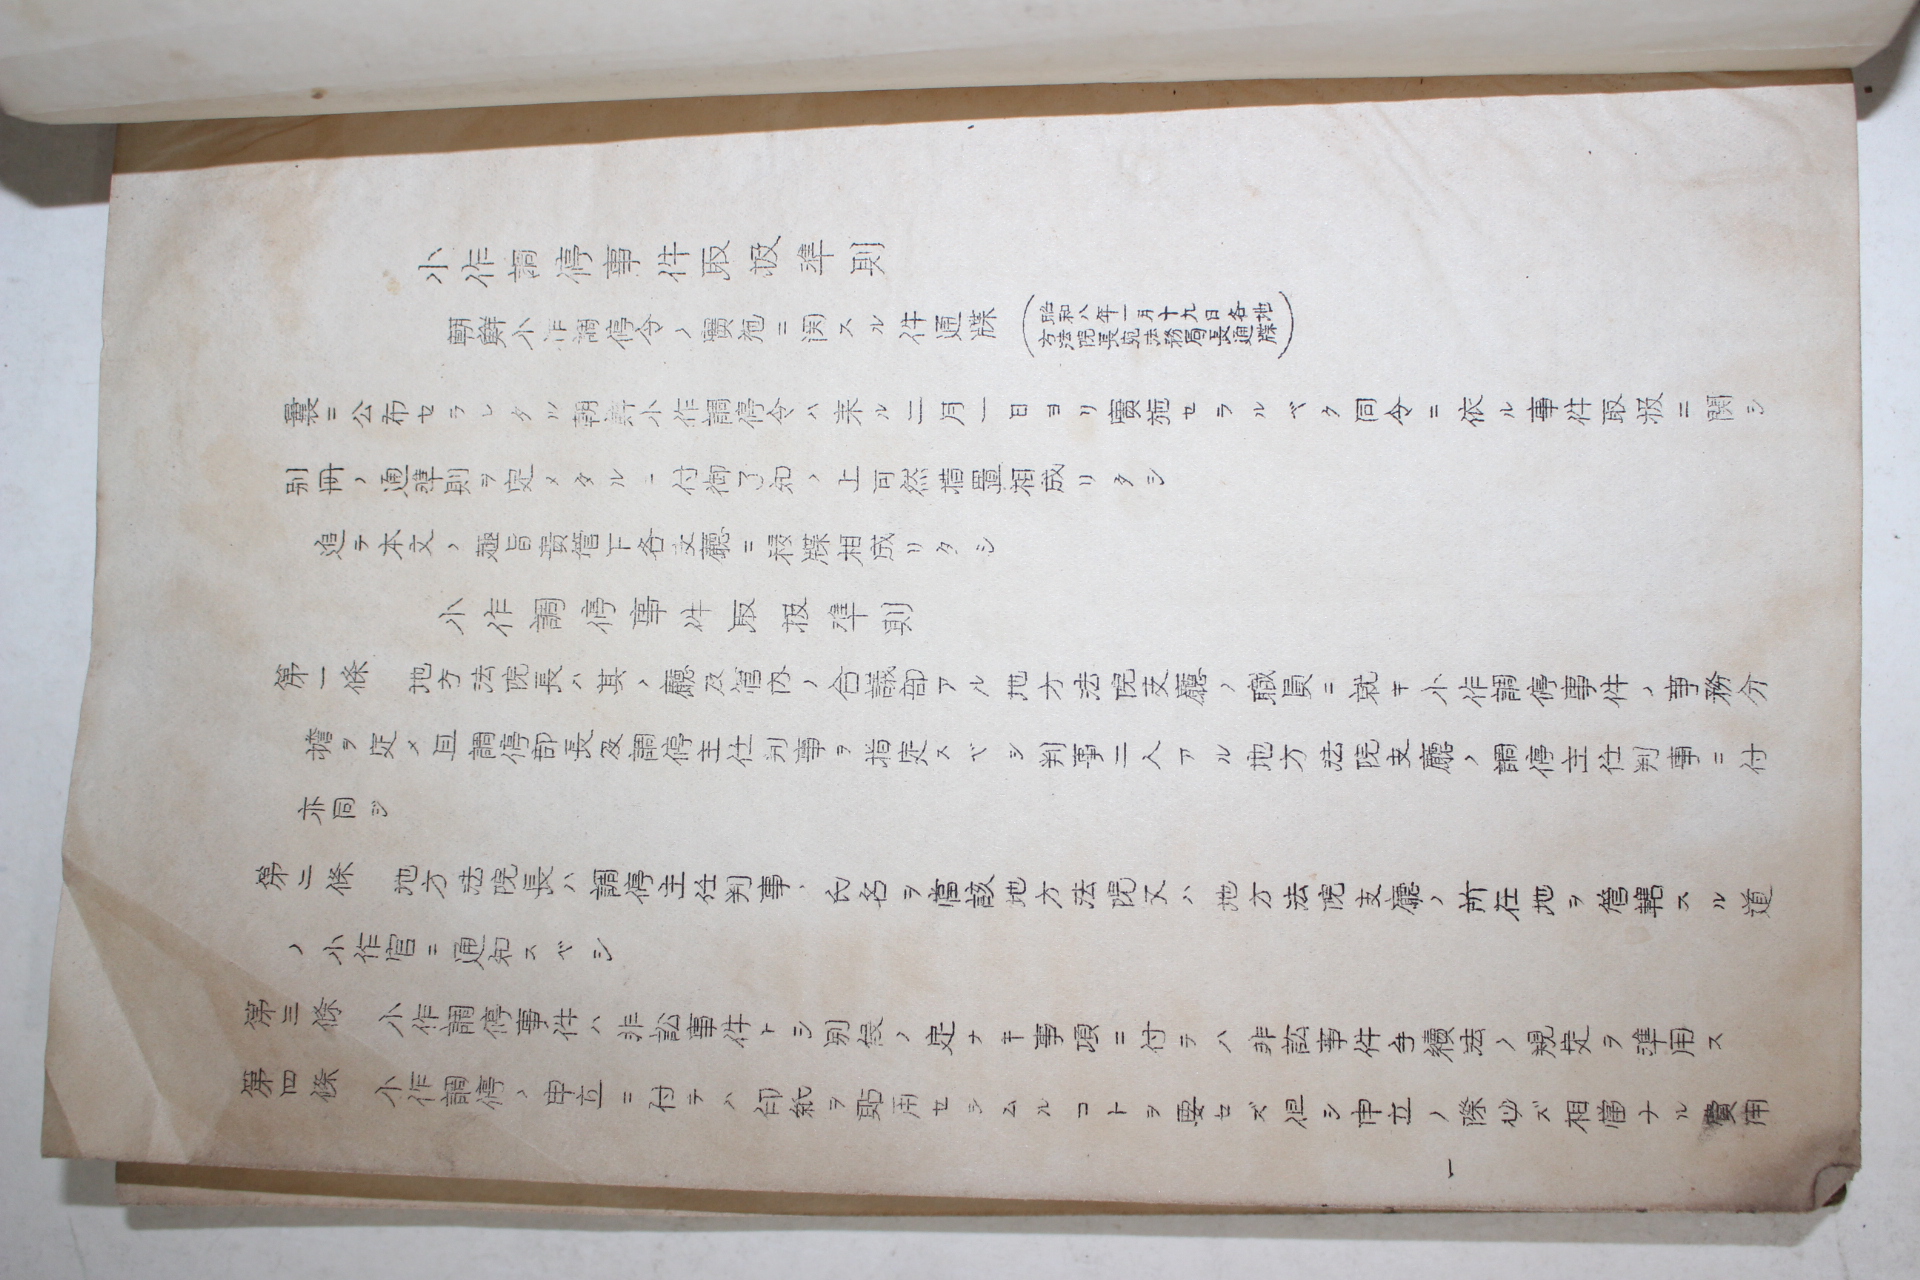 小作調停事件取扱準則
朝鮮小作調停令ノ實施ニ関スル件通牒(昭和八年一月十九日各地
方法院長宛法務局長通牒)
曩ニ公布セラレタル朝鮮小作調停令ハ来ル二月一日ヨリ實施セラルベク同令ニ依ル事件取扱ニ関シ
別冊ノ通準則ヲ定メタルニ付御了知ノ上可然措置相成リタシ
追テ本文ノ趣旨貴管下各支廳ニ移牒相成リタシ
小作調停事件取扱準則
第一條 地方法院長ハ其ノ廳及管内ノ合議部アル地方法院支廳ノ職員ニ就キ小作調停事件ノ事務分
擔ヲ定メ且調停部長及調停主任判事ヲ指定スベシ判事二人アル地方法院支廳ノ調停主任判事ニ付
亦同ジ
第二條 地方法院長ハ調停主任判事ノ氏名ヲ當該地方法院又ハ地方法院支廳ノ所在地ヲ管轄スル道
ノ小作官ニ通知スベシ
第三條 小作調停事件ハ非訟事件トシ別段ノ定ナキ事項ニ付テハ非訟事件手續法ノ規定ヲ準用ス
第四條 小作調停ノ申立ニ付テハ印紙ヲ貼用セシムルコトヲ要セズ但シ申立ノ際必ズ相當ナル費用
一